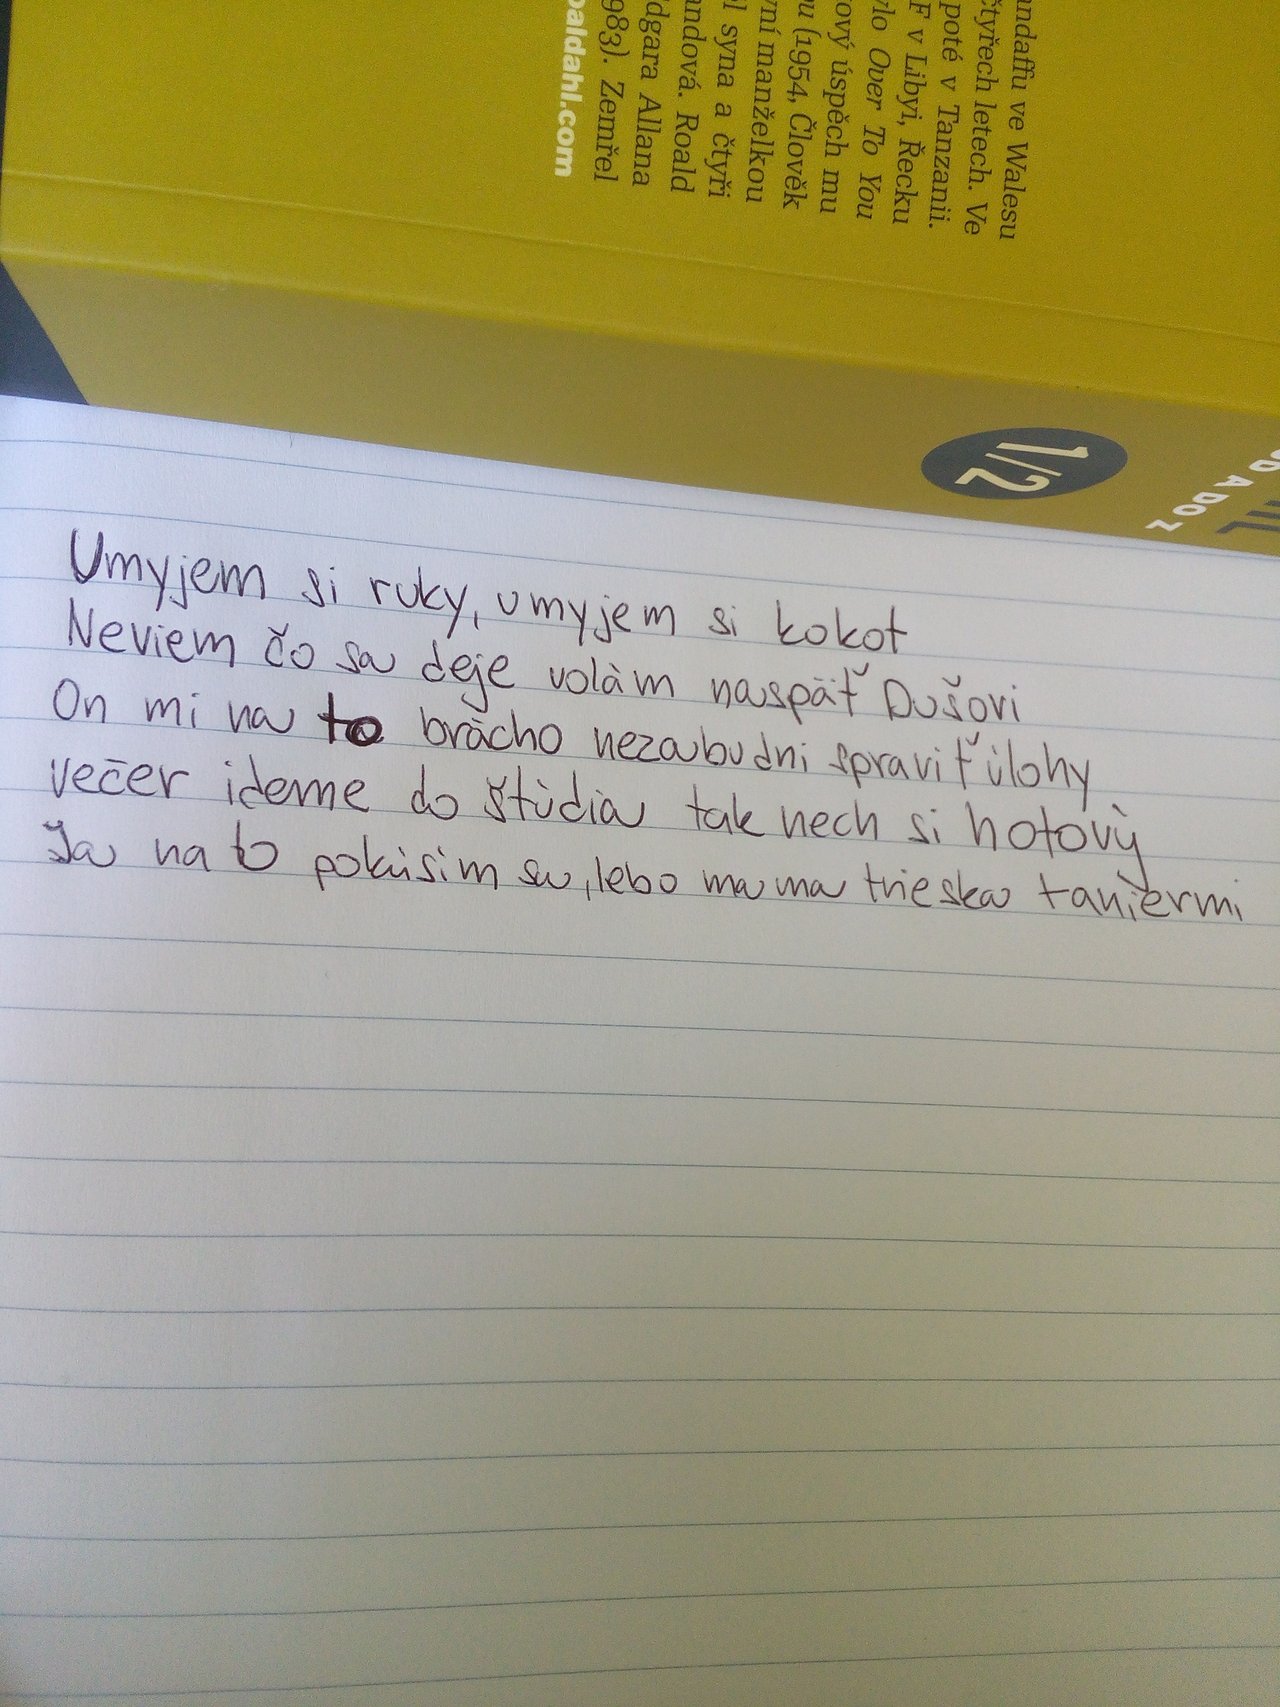 andaffu ve Walesu
čtyřech letech. Ve
poté v Tanzanii.
F v Libyi, Řecku
ylo Over To You
rový úspěch mu
u (1954, Člověk
vní manželkou
l syna a čtyři
andová. Roald
dgara Allana
983). Zemřel
oaldahl.com
1/2
OD A DO Z
Umyjem si ruky, umyjem si kokot
Neviem čo sa deje volám naspäť Dušovi
On mi na to brácho nezabudni spraviť úlohy
večer ideme do štúdia tak nech si hotový
Ja na to pokúsim sa, lebo mama trieska taniermi